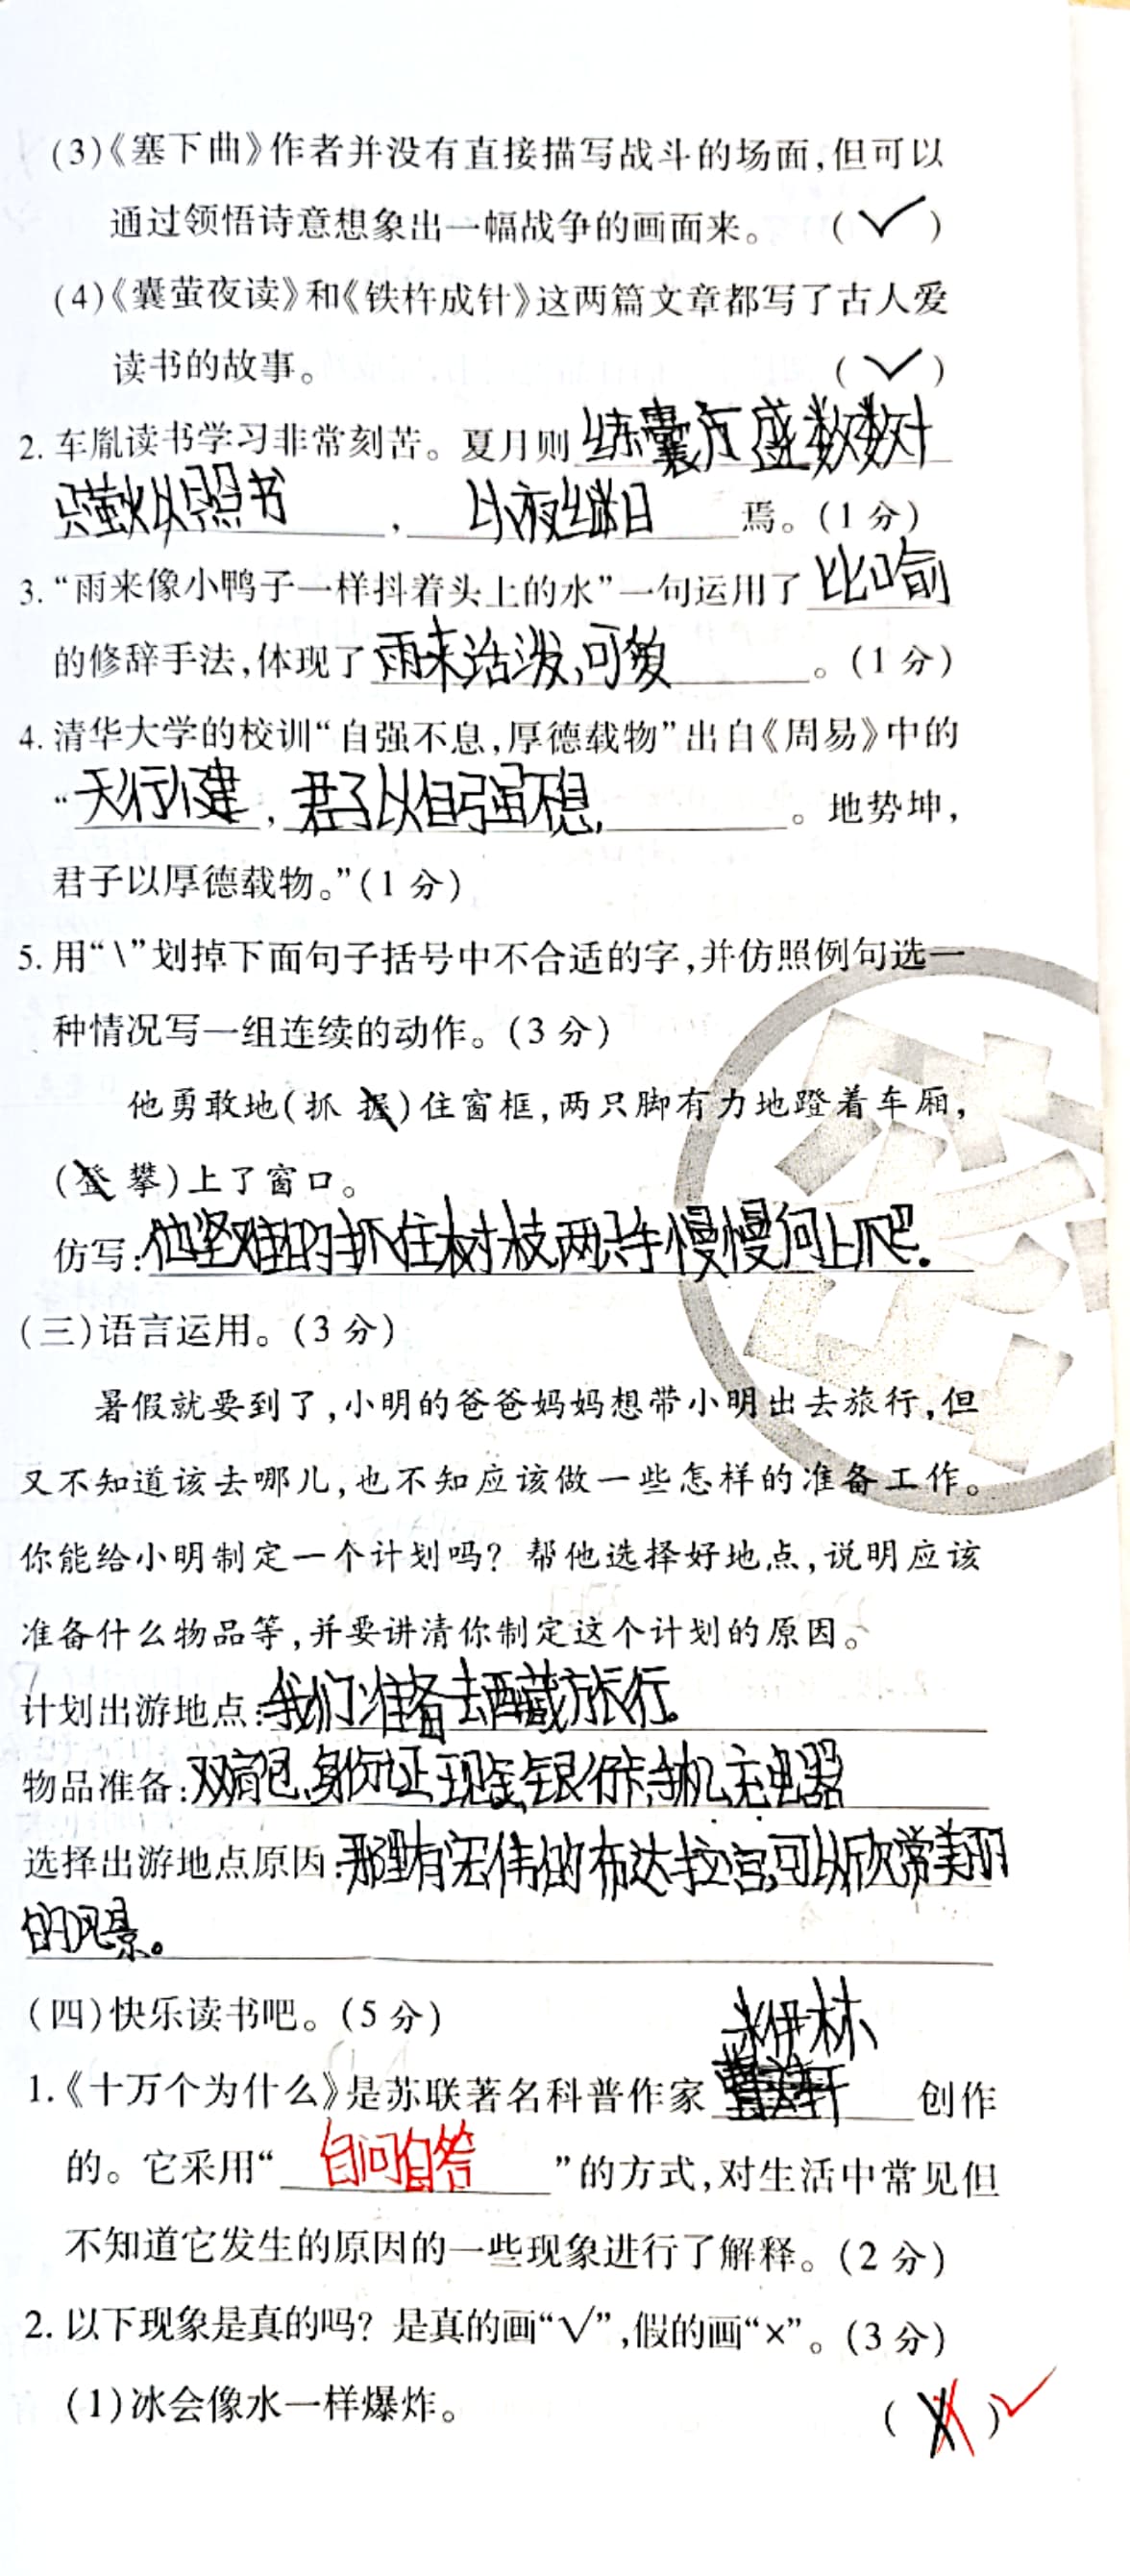 (3)《塞下曲》作者并没有直接描写战斗的场面,但可以
通过领悟诗意想象出一幅战争的画面来。 (✓)
(4)《囊萤夜读》和《铁杵成针》这两篇文章都写了古人爱
读书的故事。 (✓)
2. 车胤读书学习非常刻苦。夏月则练囊方盛数数十
只萤火以照书,以夜继日焉。(1分)
3. “雨来像小鸭子一样抖着头上的水”一句运用了比喻
的修辞手法,体现了雨来活泼、可爱。(1分)
4. 清华大学的校训“自强不息,厚德载物”出自《周易》中的
“天行健,君子以自强不息。地势坤,
君子以厚德载物。”(1分)
5. 用“\”划掉下面句子括号中不合适的字,并仿照例句选一
种情况写一组连续的动作。(3分)
他勇敢地(抓 握)住窗框,两只脚有力地蹬着车厢,
(登 攀)上了窗口。
仿写:他坚难的抓住树枝,两只手慢慢向上爬.
(三)语言运用。(3分)
暑假就要到了,小明的爸爸妈妈想带小明出去旅行,但
又不知道该去哪儿,也不知应该做一些怎样的准备工作。
你能给小明制定一个计划吗? 帮他选择好地点,说明应该
准备什么物品等,并要讲清你制定这个计划的原因。
计划出游地点:我们准备去西藏旅行。
物品准备:双肩包、身份证、现金、银行卡、手机、充电器
选择出游地点原因:那里有宏伟的布达拉宫,可以欣常美丽
的风景。
(四)快乐读书吧。(5分)
米伊林
1.《十万个为什么》是苏联著名科普作家 创作
的。它采用“自问自答”的方式,对生活中常见但
不知道它发生的原因的一些现象进行了解释。(2分)
2. 以下现象是真的吗? 是真的画“√”,假的画“×”。(3分)
(1)冰会像水一样爆炸。 (×)✓